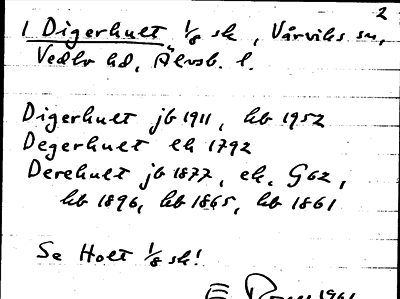 2
1 Digerhult 1/8 sk, Vårviks sn,
Vedbo hd, Älvsb. l.
Digerhult jb 1911, kb 1952
Degerhult ek 1792
Derehult jb 1877, ek, G62,
kb 1896, kb 1865, kb 1861
Se Holt 1/8 sk!